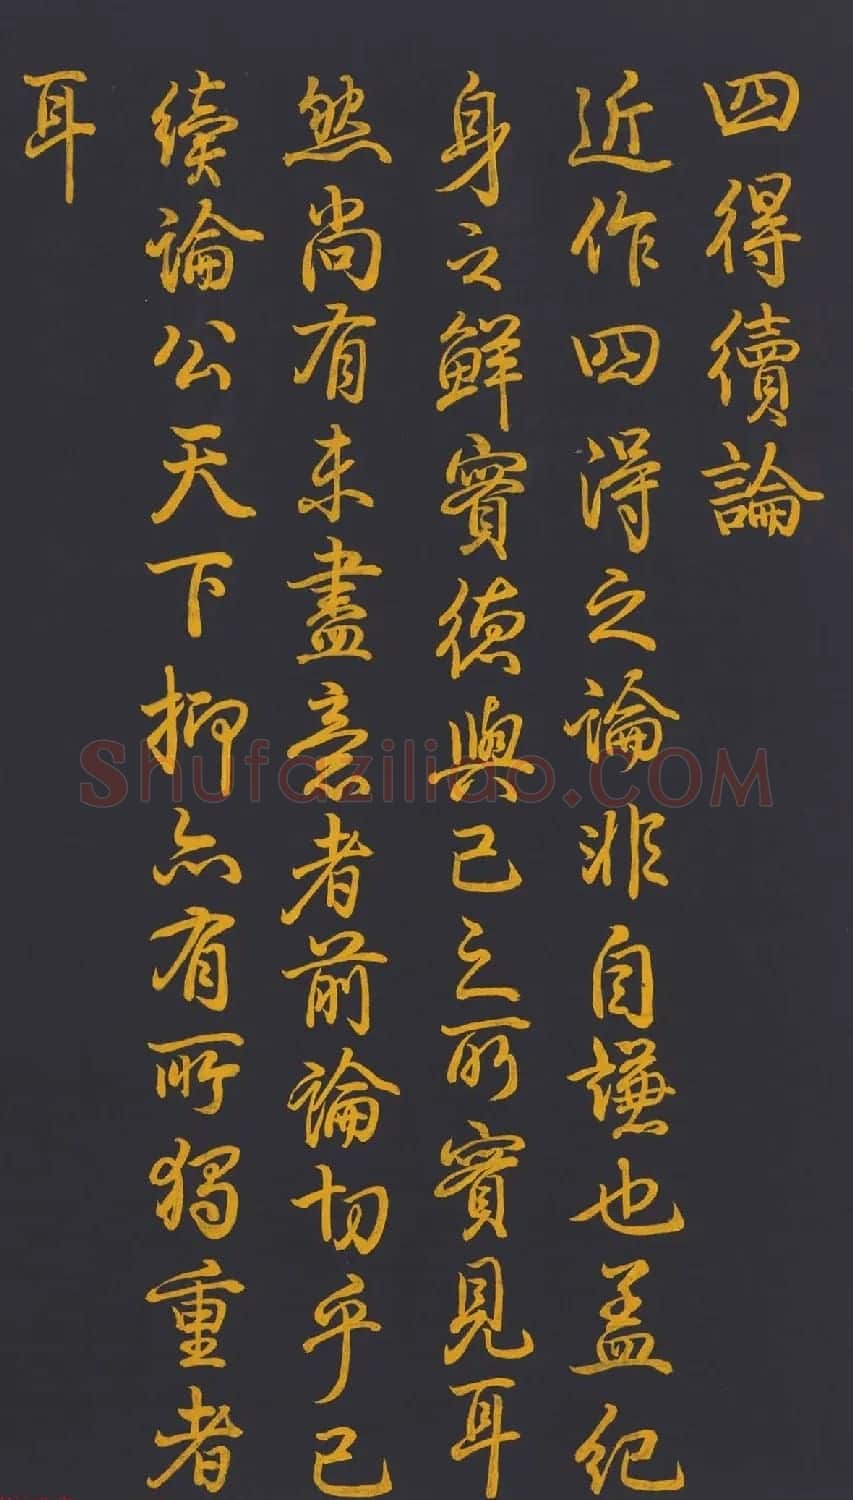 四得續論
近作四得之論非自謙也盖紀
身之鮮實德與己之所實見耳
然尚有未盡意者前論切乎已
續論公天下抑亦有所獨重者
耳
Shufaziliao.COM